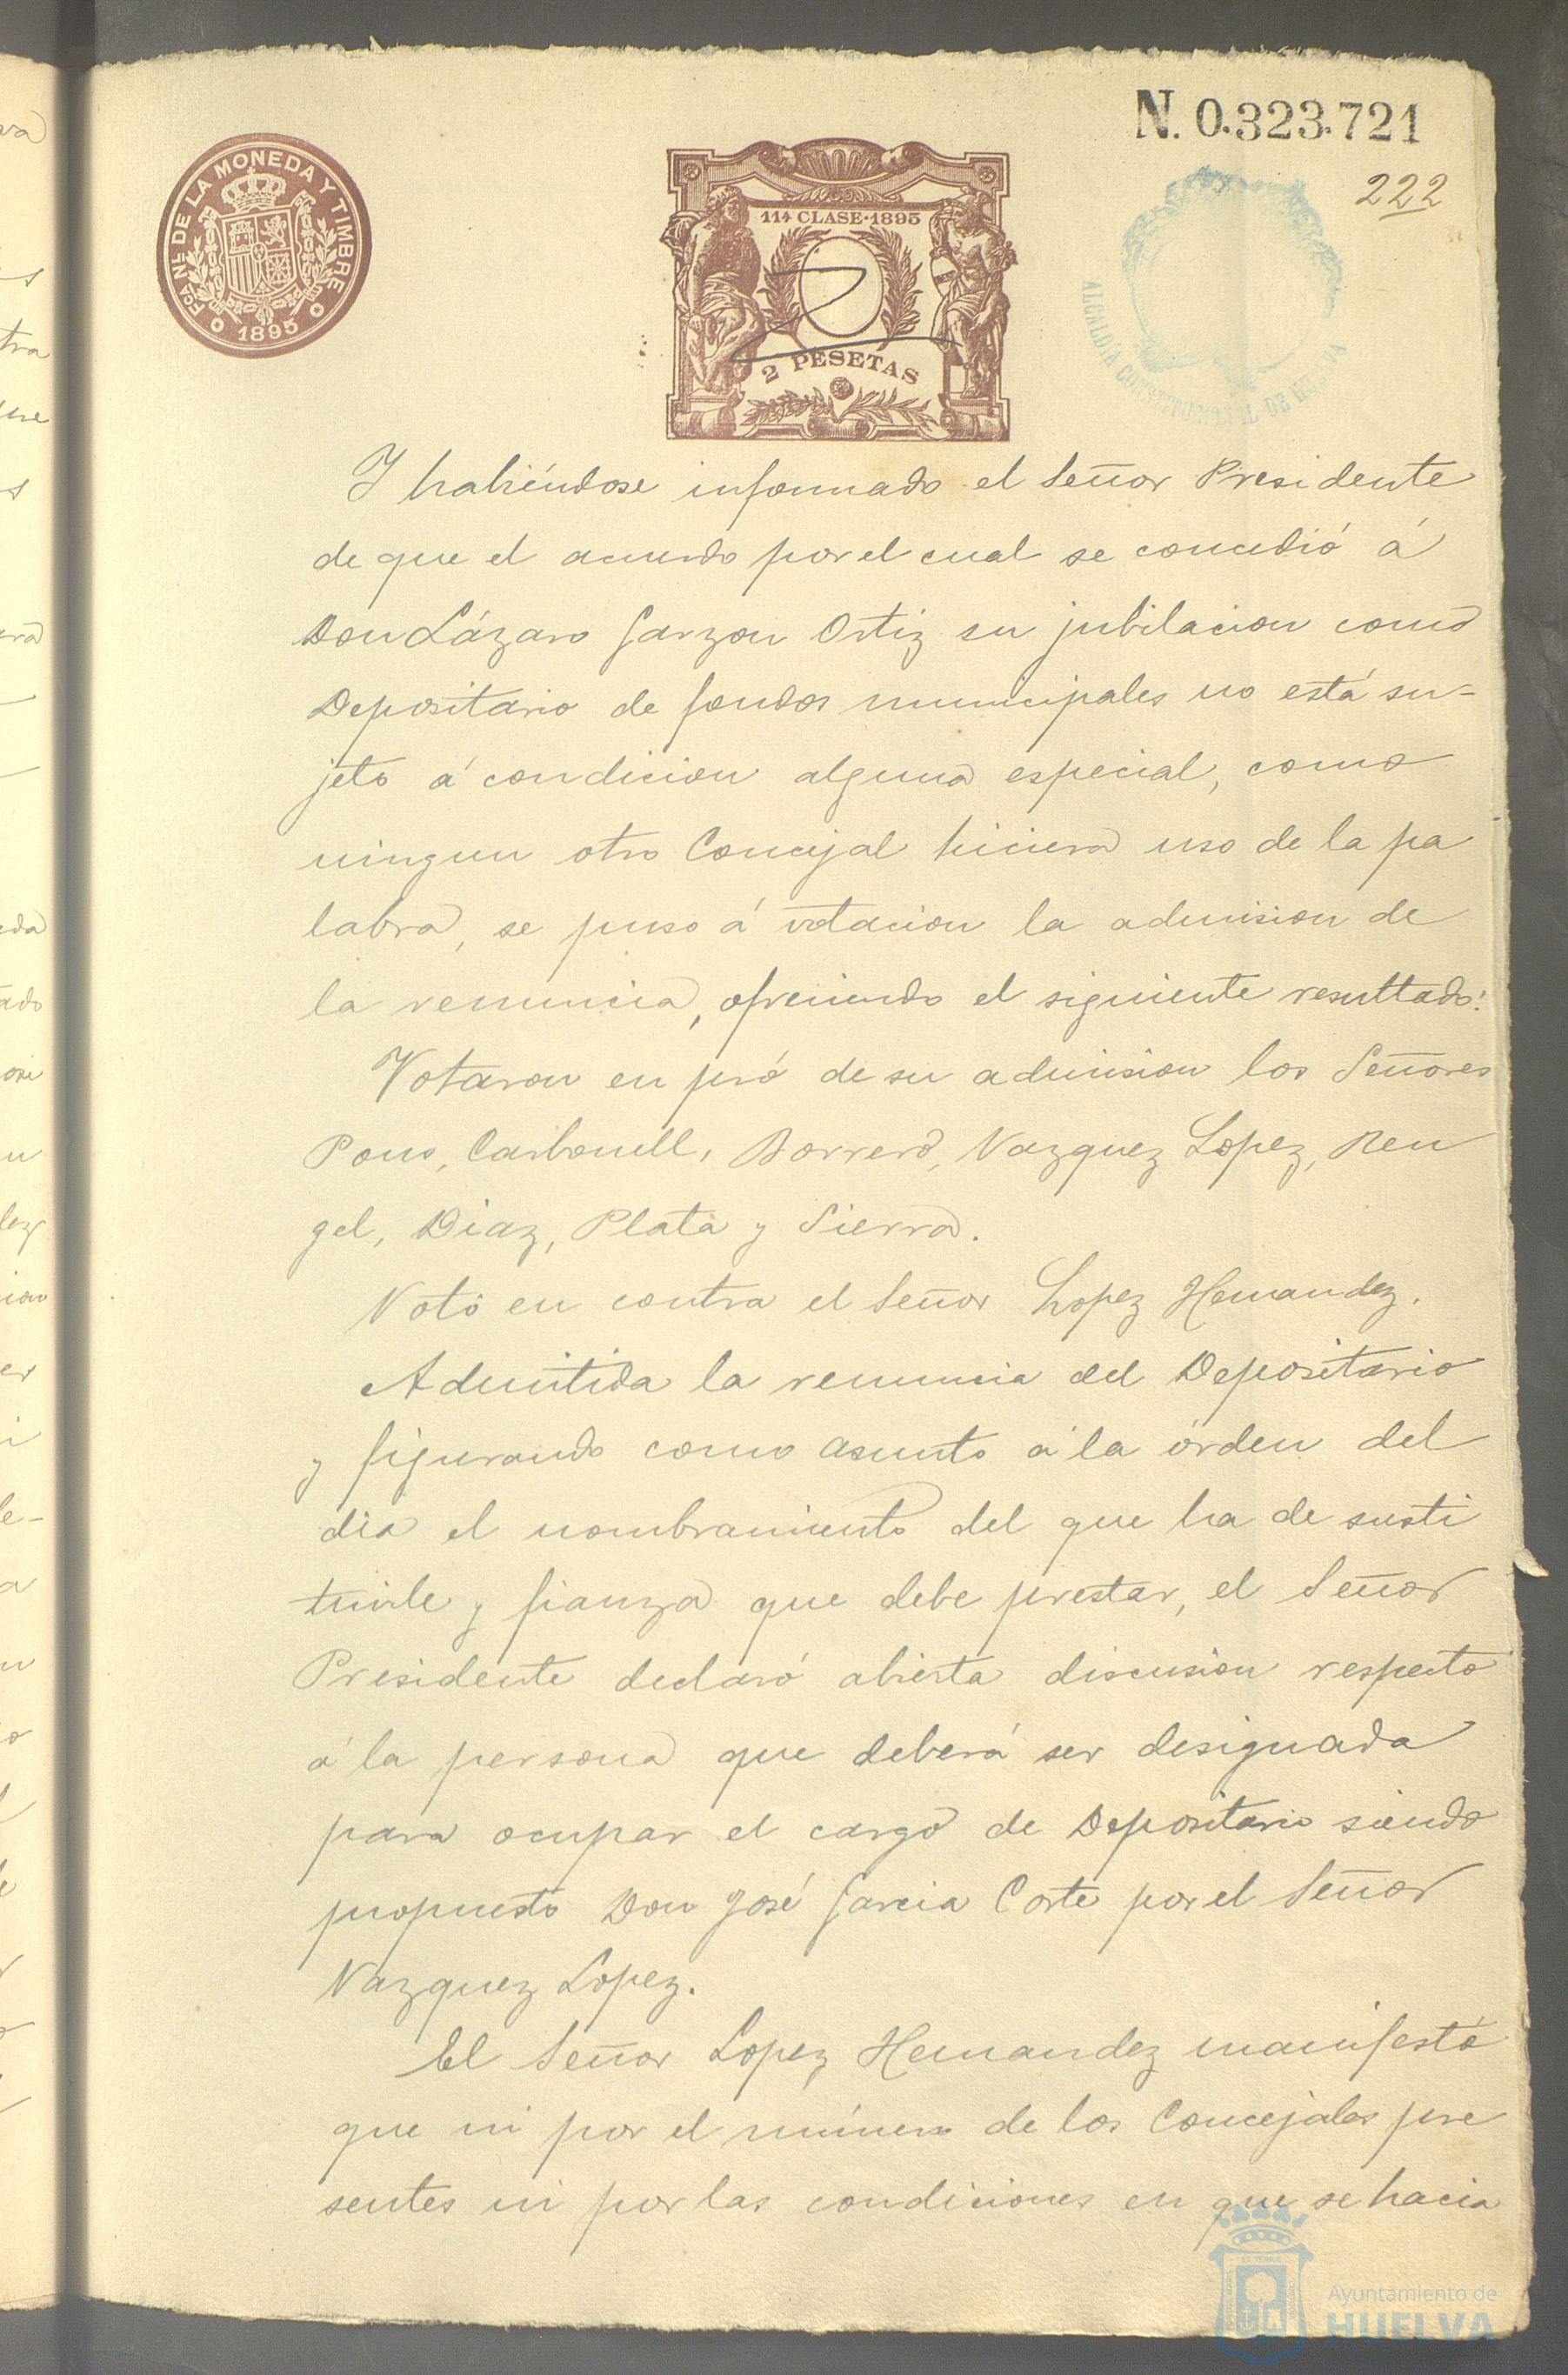 N. 0.323.721
222
FCA. NL. DE LA MONEDA Y TIMBRE
1895
11ª CLASE·1895
2 PESETAS
ALCALDÍA CONSTITUCIONAL DE
Y habiéndose informado el Señor Presidente
de que el acuerdo por el cual se concedió á
Don Lázaro Garzon Ortiz su jubilacion como
Depositario de fondos municipales no está su=
jeto á condicion alguna especial, como
ningun otro Concejal hiciera uso de la pa
labra, se puso á votacion la admision de
la renuncia, ofreciendo el siguiente resultado:
Votaron en pró de su admision los Señores
Pons, Carbonell, Borrero, Vazquez Lopez, Ren
gel, Diaz, Plata y Sierra.
Votó en contra el Señor Lopez Hernandez.
Admitida la renuncia del Depositario
y figurando como asunto á la órden del
dia el nombramiento del que ha de susti
tuirle y fianza que debe prestar, el Señor
Presidente declaró abierta discusion respecto
á la persona que deberá ser designada
para ocupar el cargo de Depositario siendo
propuesto Don José Garcia Corte por el Señor
Vazquez Lopez.
El Señor Lopez Hernandez manifestó
que ni por el número de los Concejales pre
sentes ni por las condiciones en que se hacia
Ayuntamiento de
HUELVA